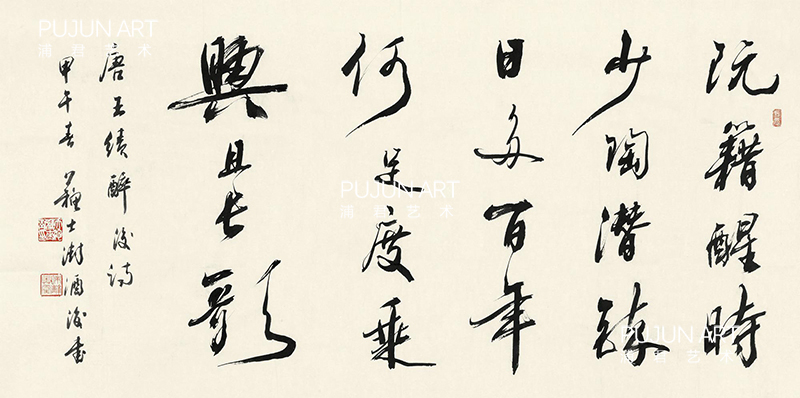 阮籍醒時
少陶潛醉
日多百年
何足度乘
興且長歌
唐王績醉後詩
甲午春蘇士澍酒後書
PUJUN ART
浦君艺术
PUJUN ART
浦君艺术
PUJUN ART
浦君艺术